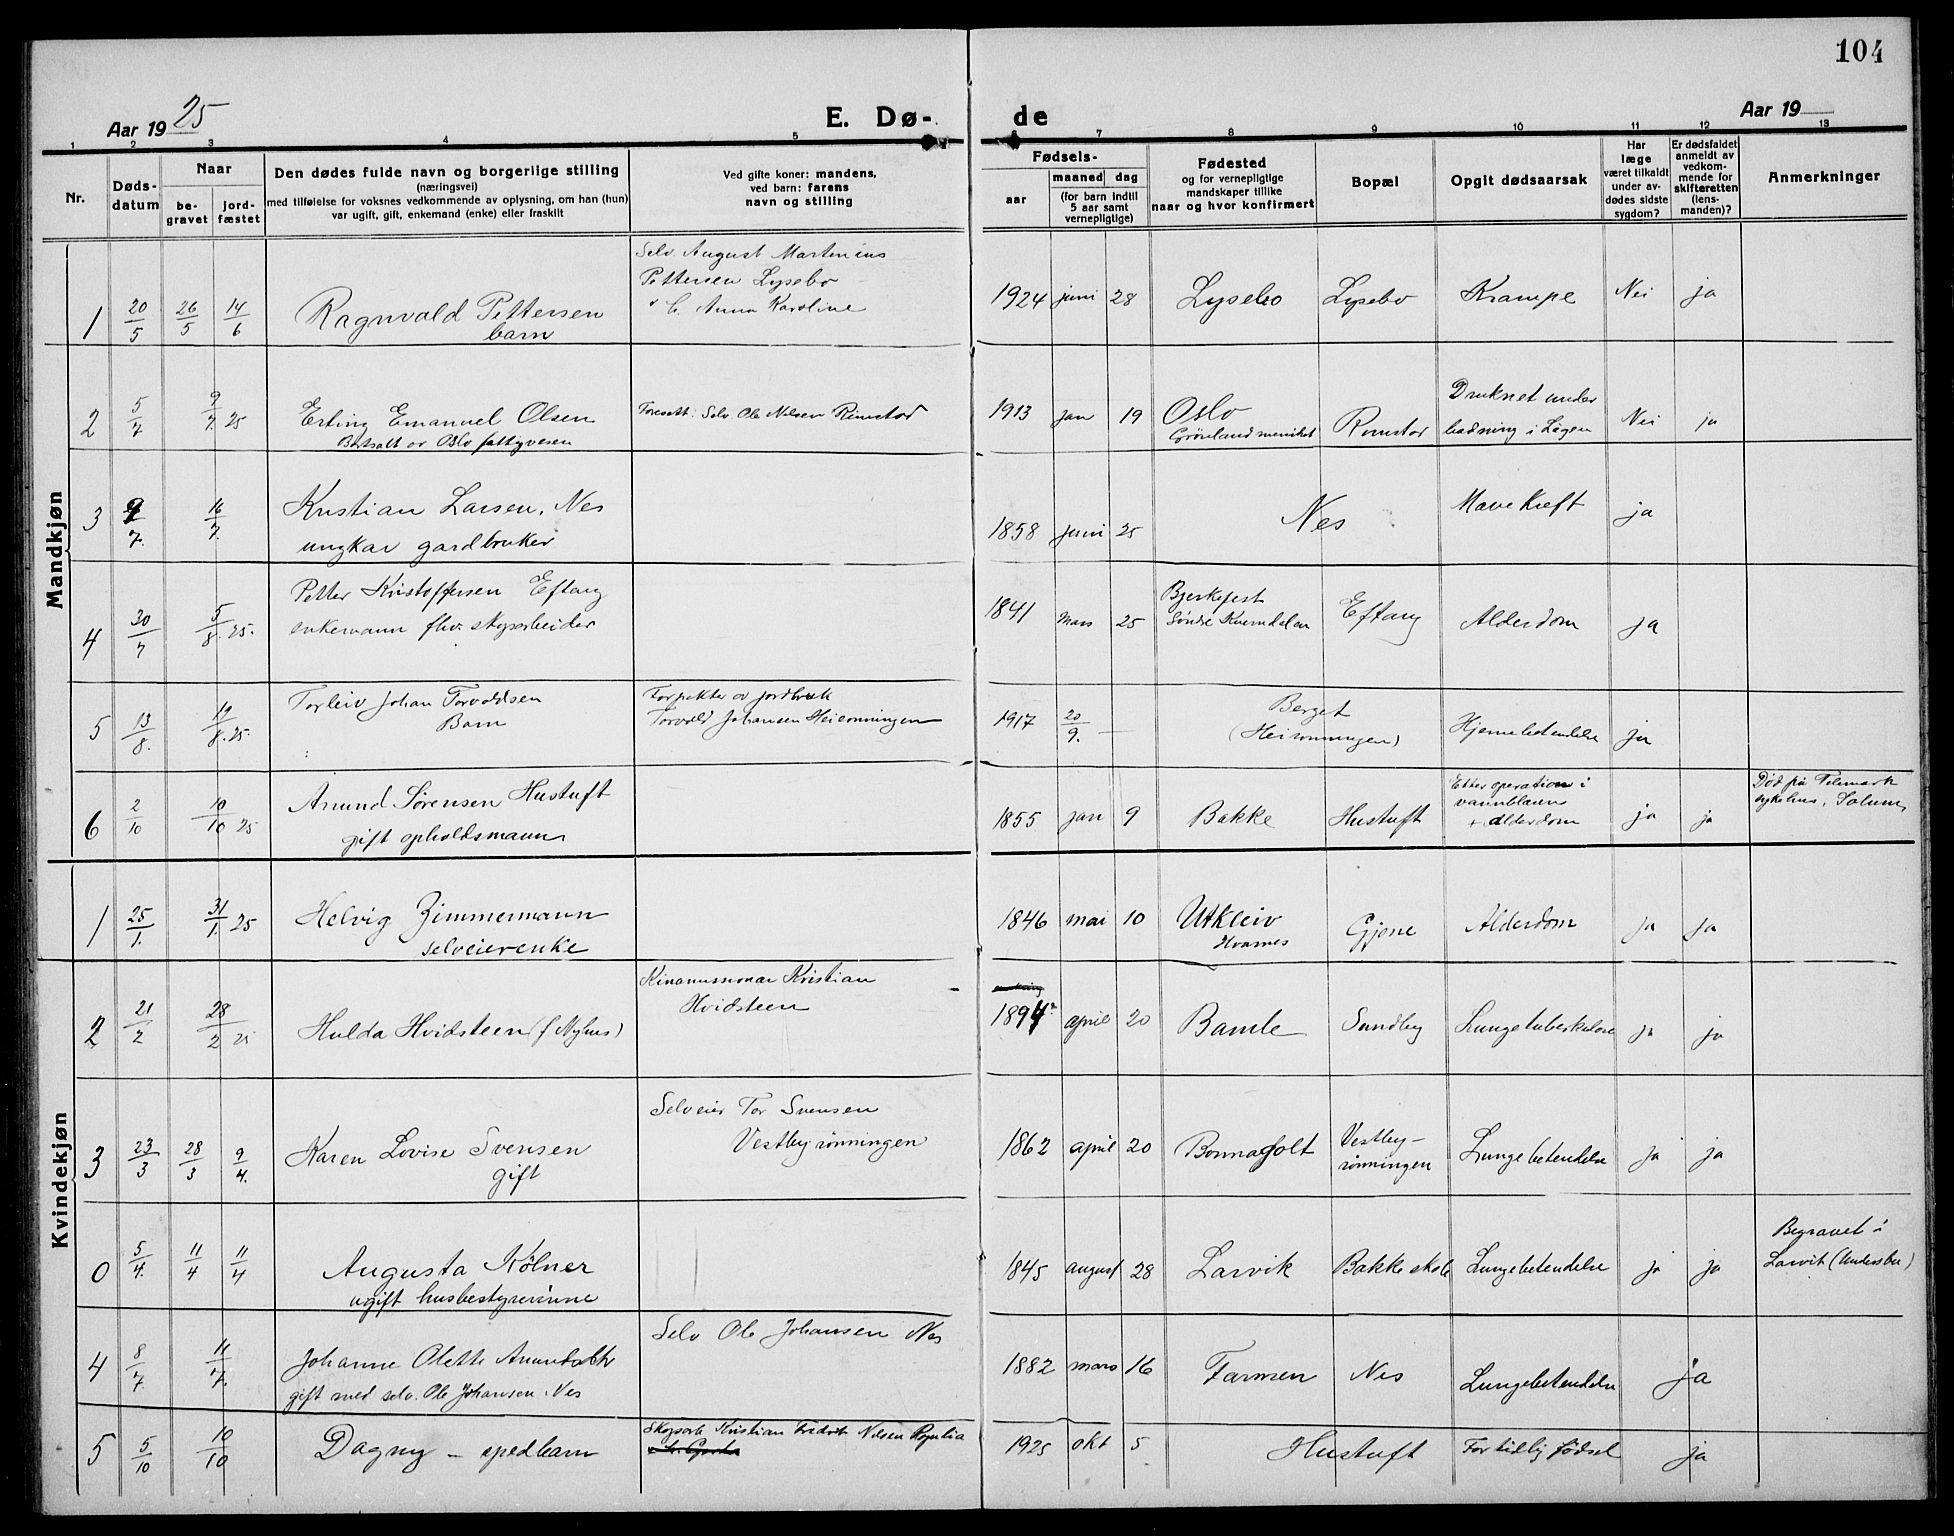 104
Aar 1925
E. Dø- de
Aar 19
1 2 3 4 5 6 7 8 9 10 11 12 13
Nr.
Døds-
datum
Naar
be-
gravet
jord-
fæstet
Den dødes fulde navn og borgerlige stilling
(næringsvei)
med tilføielse for voksnes vedkommende av oplysning, om han (hun)
var ugift, gift, enkemand (enke) eller fraskilt
Ved gifte koner: mandens,
ved barn: farens
navn og stilling
Fødsels-
aar
maaned dag
(for barn indtil
5 aar samt
vernepligtige)
Fødested
og for vernepligtige
mandskaper tillike
naar og hvor konfirmert
Bopæl
Opgit dødsaarsak
Har
læge
været tilkaldt
under av-
dødes sidste
sygdom?
Er dødsfaldet
anmeldt av
vedkom-
mende for
skifteretten
(lens-
manden)?
Anmerkninger
Mandkjøn
1 20/5 26/5 14/6
Ragnvald Pettersen
barn
Selv. August Martenius
Pettersen Lysebo
Anna Karoline
1924 juni 28 Lysebo Lysebo Krampe Nei ja
2 5/7 9/7. 25
Erling Emanuel Olsen
Bortsatt av Oslo fattigvesen
Foresatt: Selv. Ole Nilsen Rimstad
1913 jan 19 Oslo
Grönland menihet
Rimstad
Druknet under
badning i Lågen
Nei ja
3 9/7. 16/7.
Kristian Larsen, Nes
ungkar gardbruker
1858 juni 25 Nes Mavekreft ja
4 30/7 5/8. 25.
Petter Kristoffersen Eftang
enkemann fhv. skogsarbeider
1841 Mars 25
Eftang Alderdom ja
5 13/8. 19/8. 25.
Torleiv Johan Torvaldsen
Barn
Forpakter av jordbruk
Torvald Johansen Heirønningen
1917 20/9. —
Berget
(Heirønningen)
Hjernebetendelse ja
6 2/10 10/10 25
Amund Sørensen Hustuft
gift opholdsmann
1855 jan 9 Bakke Hustuft
Etter operation i
vannblæren
+ alderdom
ja ja
Død på Telemark
sykehus, Solum
Kvindekjøn
1 25/1. 31/1. 25
Helvig Zimmermann
selveierenke
1846 mai 10 Utkleiv
Hvarnes
Gjone Alderdom ja ja
2 21/2 28/2 25
Hulda Hvidsteen (f. Nyhus)
Kinamissionær Kristian
Hvidsteen
1894 april 20 Bamle Sundby Lungetuberkulose ja ja
3 23/3 28/3 9/4.
Karen Lovise Svensen
gift
Selveier Tor Svensen
Vestbyrønningen
1862 april 20 Bonnagolt
Vestby-
rönningen
Lungebetendelse ja ja
0 5/4. 11/4 11/4
Augusta Kölner
ugift husbestyrerinne
1845 august 28 Larvik Bakke skole Lungebetendelse ja ja
Begravet i
Larvik (Undersbo)
4 8/7. 11/7.
Johanne Olette Amundsdtr
gift med selv. Ole Johansen, Nes
Selv Ole Johansen Nes
1882 mars 16 Farmen Nes Lungebetendelse ja
5 5/10 10/10
Dagny – spedbarn
Skogsarb Kristian Fredrik Nilsen
1925 okt 5 Hustuft For tidlig fødsel ja